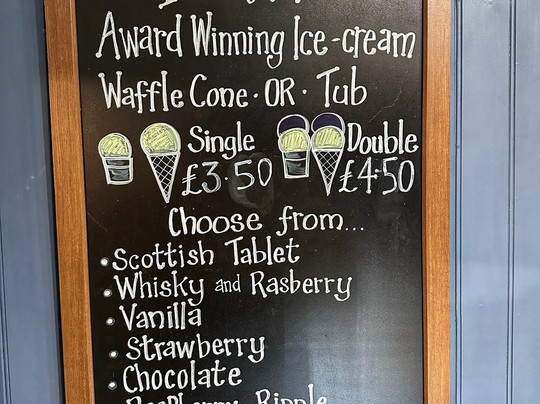 Award Winning Ice-cream
Waffle Cone · OR · Tub
Single
£3.50
Double
£4.50
Choose from...
• Scottish Tablet
• Whisky and Rasberry
• Vanilla
• Strawberry
• Chocolate
Raspberry Ripple